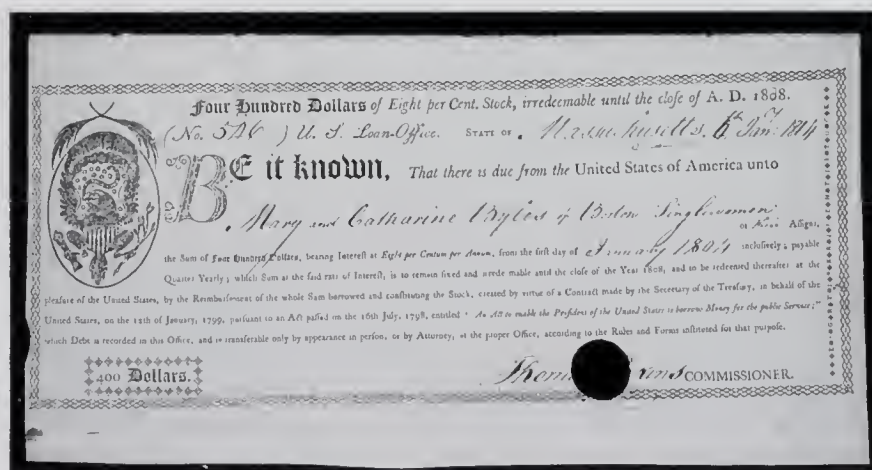 Four Hundred Dollars of Eight per Cent. Stock, irredeemable until the close of A. D. 1808.
(No. 526) U. S. Loan-Office. STATE OF Massachusetts. 6th Jany. 1804
BE it known, That there is due from the United States of America unto
Mary and Catharine Byles of Boston Singlewomen
or their Assigns,
the Sum of Four Hundred Dollars, bearing Interest at Eight per Centum per Annum, from the first day of January 1804 inclusively; payable
Quarter Yearly; which Sum at the said rate of Interest, is to remain fixed and irredeemable until the close of the Year 1808, and to be redeemed thereafter at the
pleasure of the United States, by the Reimbursement of the whole Sum borrowed and constituting the Stock, created by virtue of a Contract made by the Secretary of the Treasury, in behalf of the
United States, on the 12th of January, 1799, pursuant to an Act passed on the 16th July, 1798, entitled "An Act to enable the President of the United States to borrow Money for the public Service;"
which Debt is recorded in this Office, and is transferable only by appearance in person, or by Attorney, at the proper Office, according to the Rules and Forms instituted for that purpose.
400 Dollars.
COMMISSIONER.